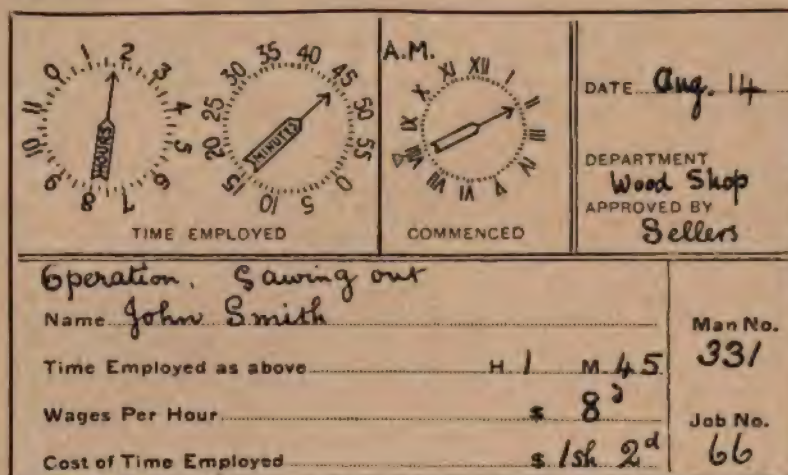 0 1 2 3 4 5 6 7 8 9 10 11
HOURS
0 5 10 15 20 25 30 35 40 45 50 55
MINUTES
TIME EMPLOYED
A.M.
XII I II III IV V VI VII VIII IX X XI
COMMENCED
DATE Aug. 14
DEPARTMENT
Wood Shop
APPROVED BY
Sellers
Operation. Sawing out
Name John Smith
Time Employed as above H 1 M 45
Wages Per Hour $ 8d
Cost of Time Employed $ 1sh 2d
Man No.
331
Job No.
66